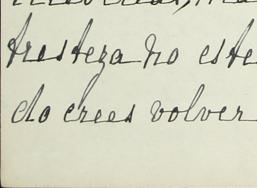 tresteza no este
do crees volver